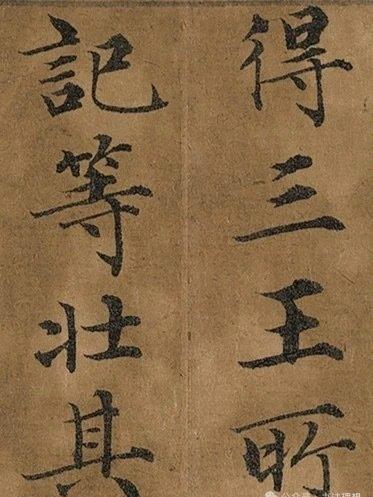 得三王所
記等壯其